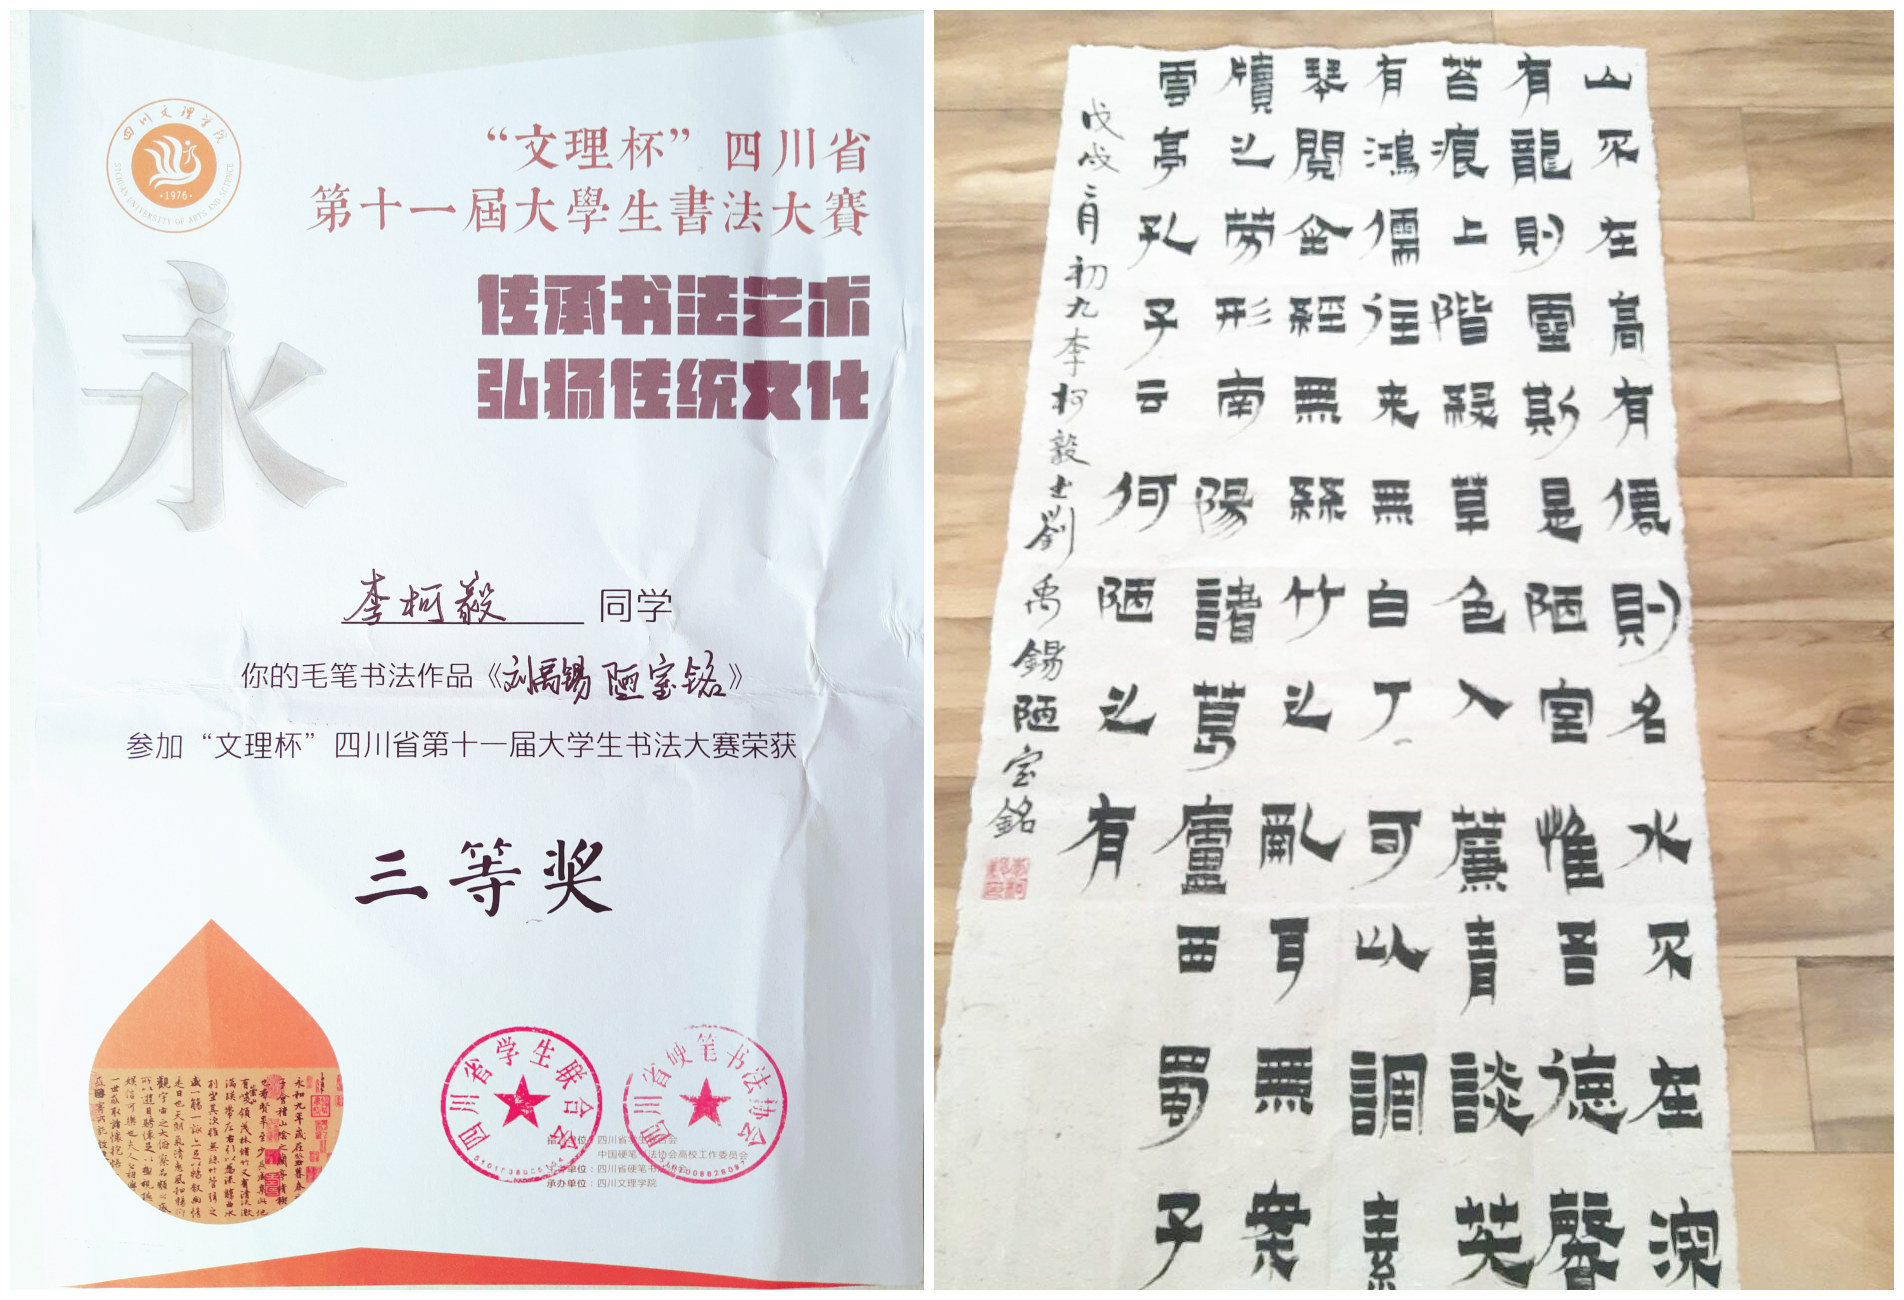 四川文理学院
SICHUAN UNIVERSITY OF ARTS AND SCIENCE
·1976·
“文理杯”四川省
第十一屆大學生書法大賽
传承书法艺术
弘扬传统文化
永
李柯毅 同学
你的毛笔书法作品《刘禹锡 陋室铭》
参加“文理杯”四川省第十一届大学生书法大赛荣获
三等奖
四川省学生联合会
四川省硬笔书法协会
单位：四川省学生联合会
中国硬笔书法协会高校工作委员会
单位：四川省硬笔书法协会
承办单位：四川文理学院
永和九年歲在癸丑暮春
山不在高有僊則名水不在深
有龍則靈斯是陋室惟吾德馨
苔痕上階緑草色入簾青談笑
有鴻儒往來無白丁可以調素
琴閱金經無絲竹之亂耳無案
牘之勞形南陽諸葛廬西蜀子
雲亭孔子云何陋之有
戊戌二月初九李柯毅書劉禹錫陋室銘